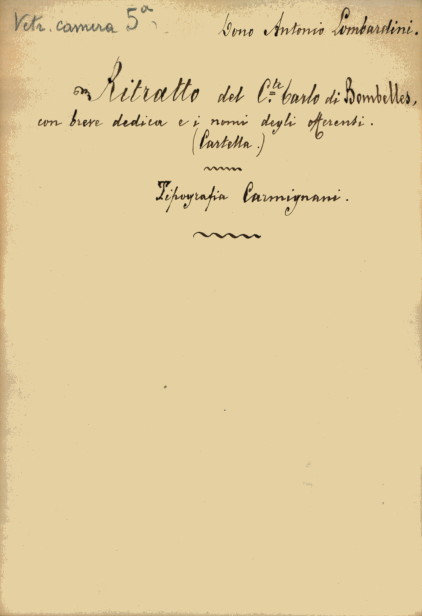 Vetr. camera 5ª
Dono Antonio Lombardini.
Ritratto del C.te Carlo di Bombelles,
con breve dedica e i nomi degli offerenti.
(Cartella.)
Tipografia Carmignani.